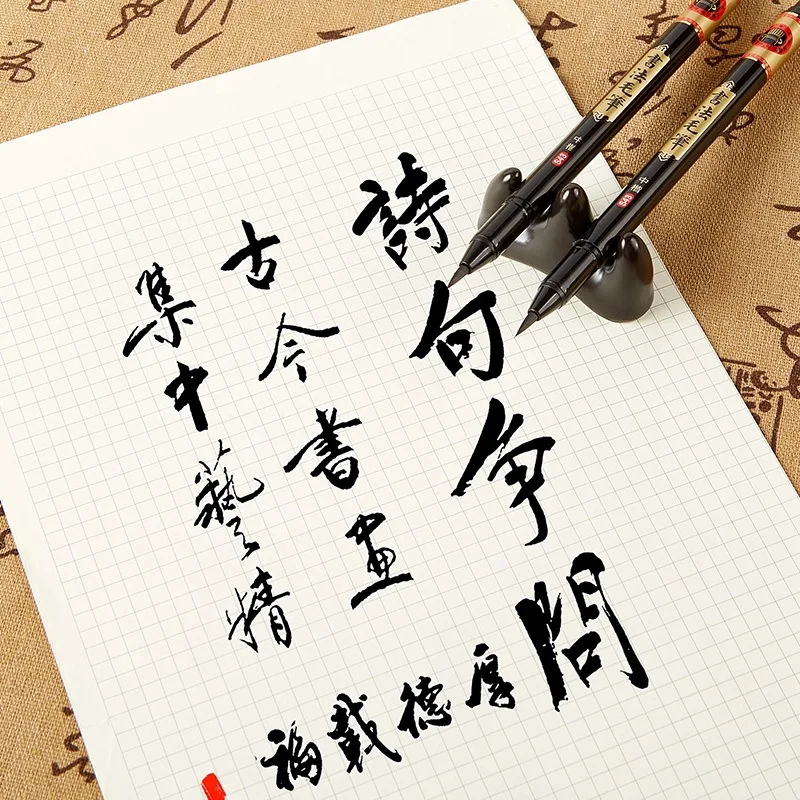 詩句争問
古今書画
集中藝精
厚德戴福
書法毛筆
中楷
書法毛筆
中楷